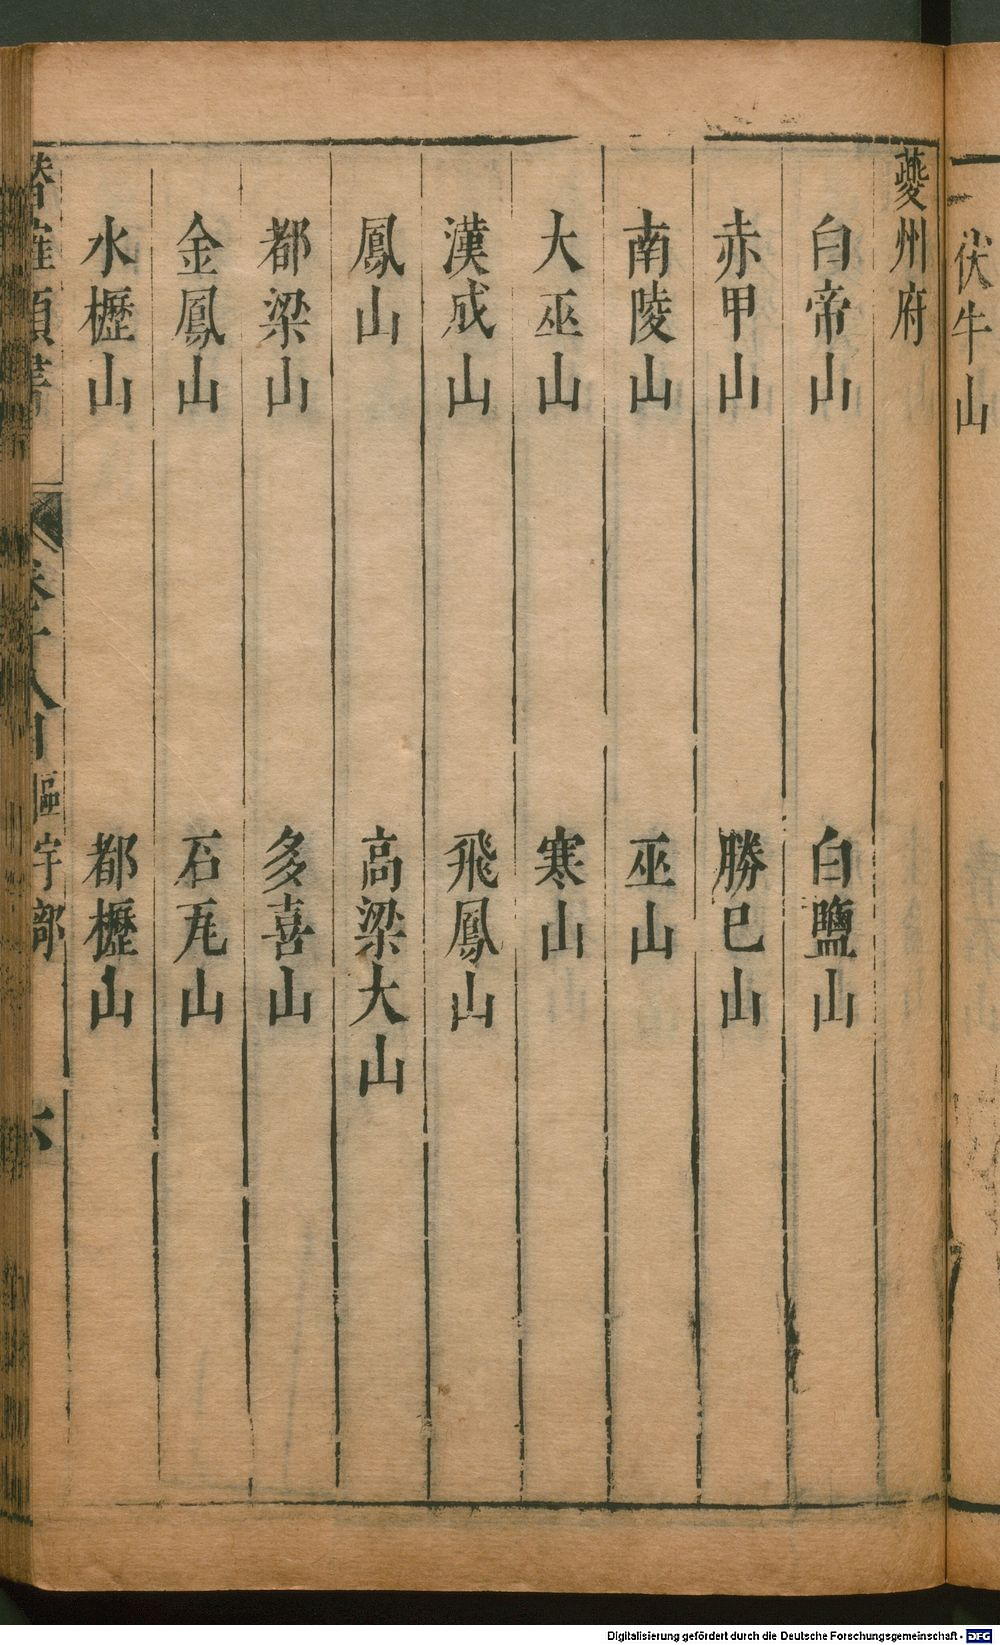 伏牛山
夔州府
白帝山 白鹽山
赤甲山 勝已山
南陵山 巫山
大巫山 寒山
漢成山 飛鳳山
鳳山 高梁大山
都梁山 多喜山
金鳳山 石瓦山
水櫪山 都櫪山
潛確類書 卷十八目 區宇部 六
Digitalisierung gefördert durch die Deutsche Forschungsgemeinschaft - DFG